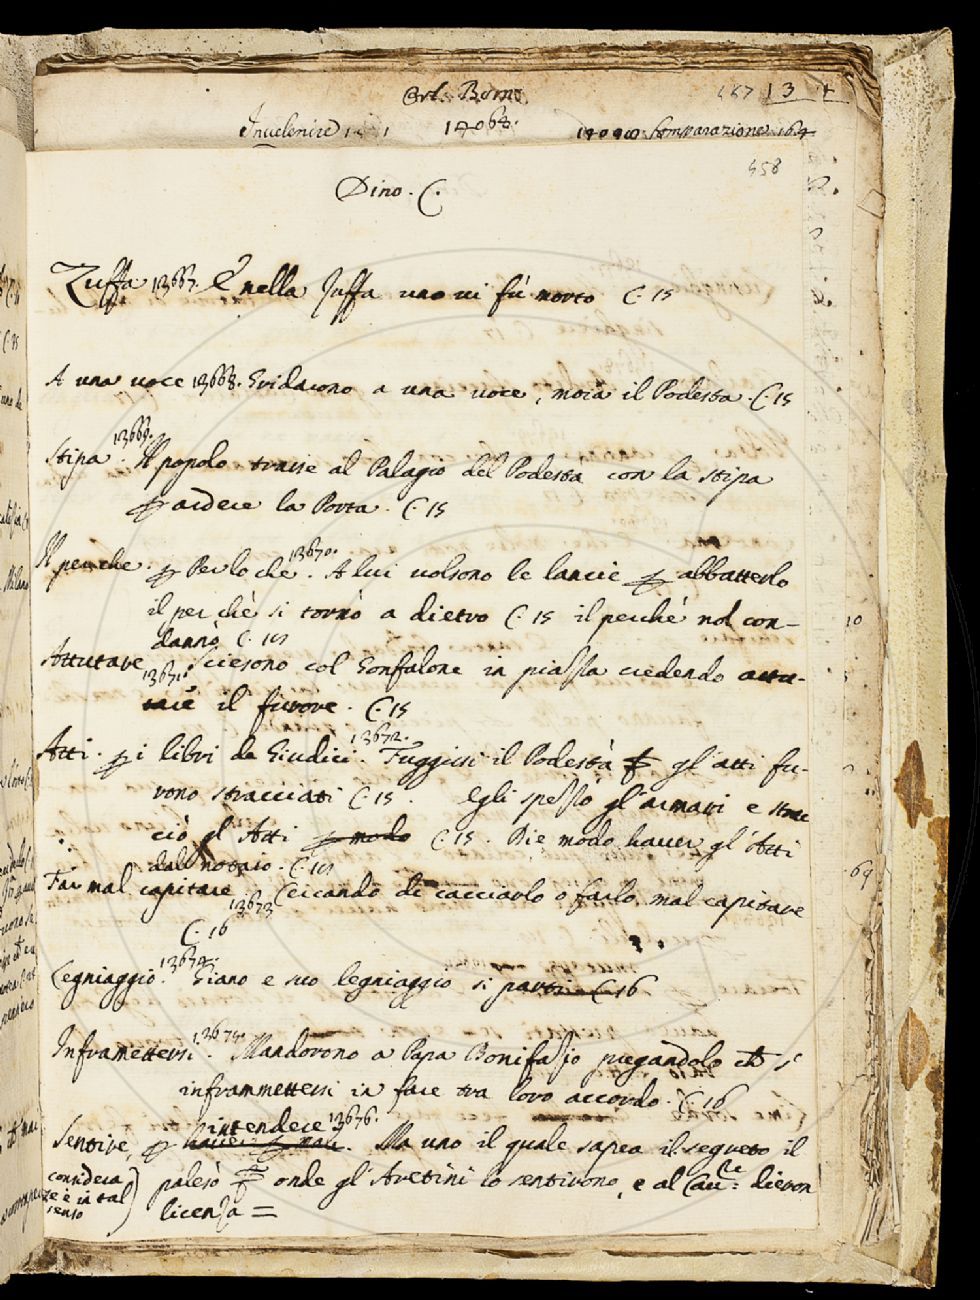 Orl. Borno
13
Invelenire
14068.
Comparazione 164
458
Dino. C.
Zuffa 13667. E nella Zuffa uno vi fù morto C. 15
A una voce 13668. Gridavono a una voce, moia il Podesta. C. 15
Stipa 13669. Il popolo trasse al Palagio del Podesta con la stipa
p ardere la Porta. C. 15
Il perche. p Perloche 13670. A lui volsono le lancie p abbatterlo
il per chè si tornò a dietro C. 15 il perchè nol con-
dannò C.
Attutare 13671. Scesono col Gonfalone in piazza credendo attu-
tare il furore. C. 15
Atti. p i libri de Giudici. 13672. Fuggissi il Podestà gl'atti fu-
rono stracciati C. 15. Egli spezzò gl'armari e strac
ciò gl'Atti p modo C. 15. Die modo haver gl'Atti
dal notaio. C.
Far mal capitare 13673 Cercando di cacciarlo o farlo mal capitare
C. 16
Legniaggio. 13674. Giano e suo legniaggio si parti C 16
Inframettersi. 13675. Mandorono a Papa Bonifazio pregandolo ch s'
inframmettersi in fare tra loro accordo. C. 16
Sentire, p intendere 13676. Ma uno il quale sapea il segreto il
palesò onde gl'Aretini lo sentirono, e al dieron
licenza =
considera
se è in tal
senso